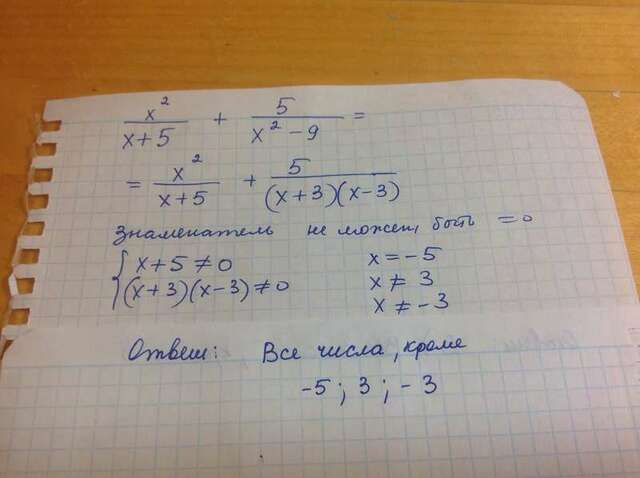 x²/(x+5) + 5/(x²-9) =
= x²/(x+5) + 5/((x+3)(x-3))
Знаменатель не может быть =0
{ x+5≠0 x=-5
(x+3)(x-3)≠0 x≠3
x≠-3
Ответ: Все числа, кроме
-5; 3; -3